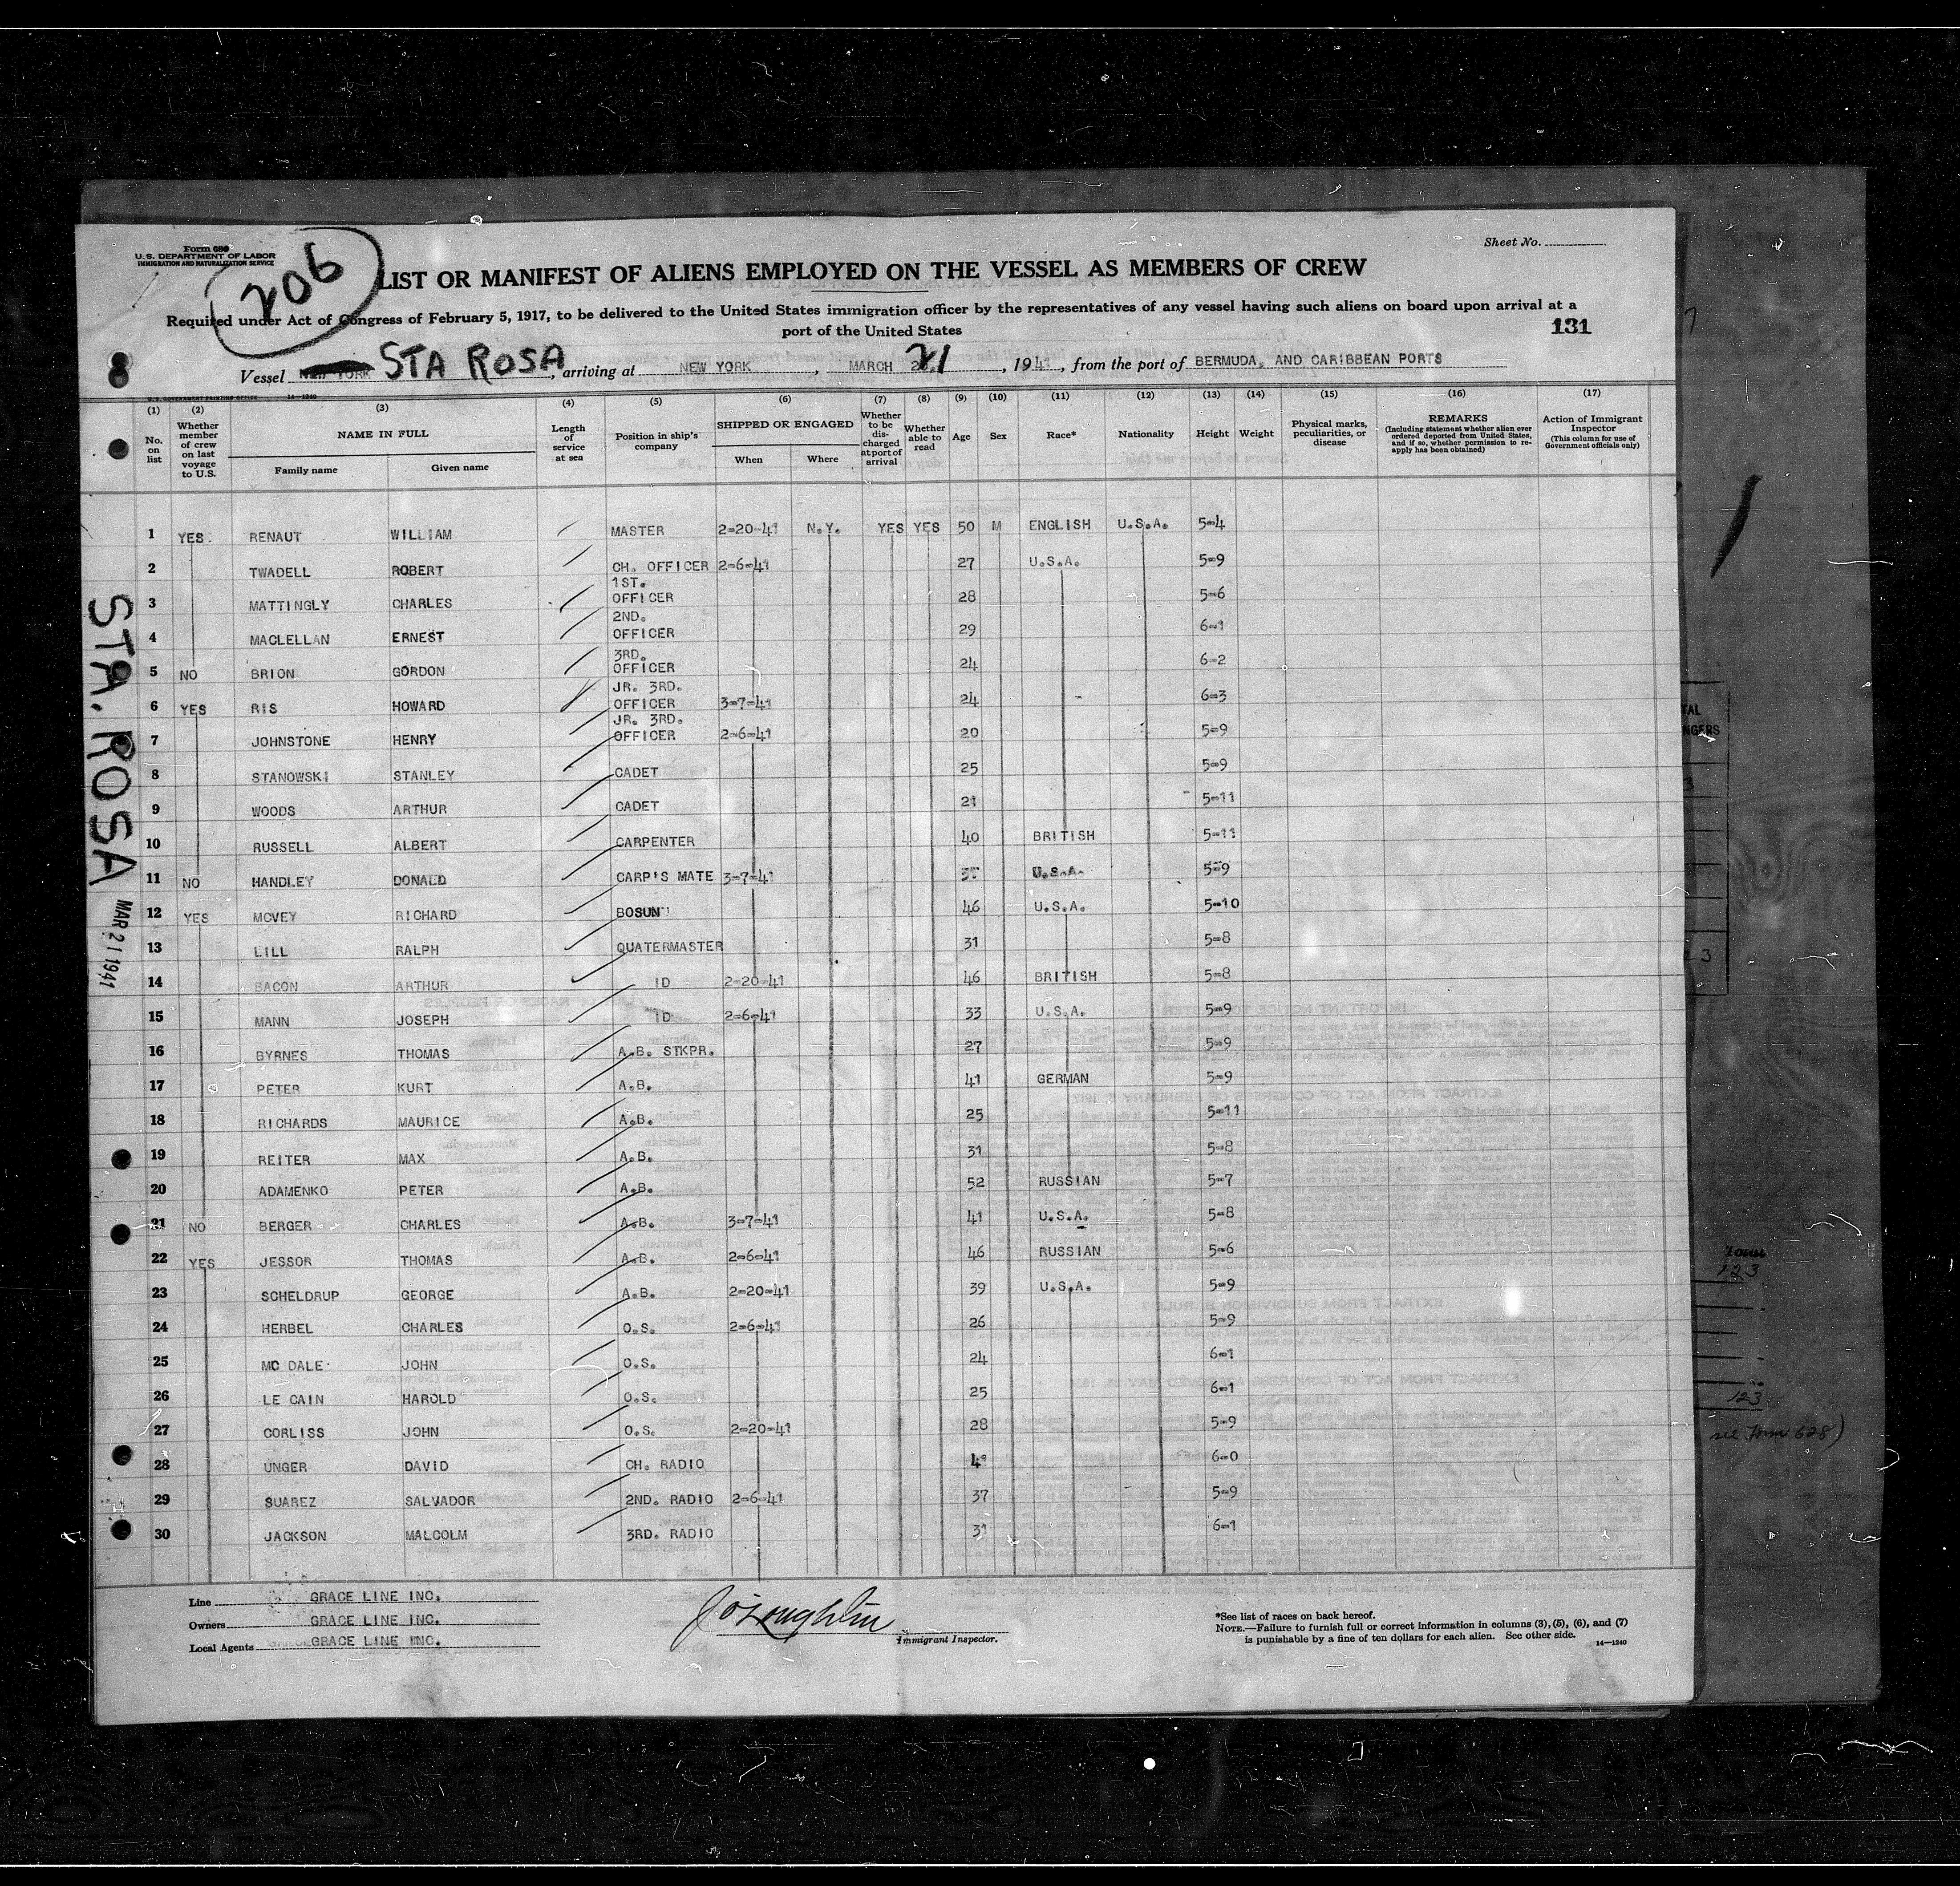 Form 680
U.S. DEPARTMENT OF LABOR
IMMIGRATION AND NATURALIZATION SERVICE
Sheet No.
206
LIST OR MANIFEST OF ALIENS EMPLOYED ON THE VESSEL AS MEMBERS OF CREW
Required under Act of Congress of February 5, 1917, to be delivered to the United States immigration officer by the representatives of any vessel having such aliens on board upon arrival at a
port of the United States
131
Vessel STA ROSA, arriving at NEW YORK, MARCH 21, 1941, from the port of BERMUDA, AND CARIBBEAN PORTS
U.S. GOVERNMENT PRINTING OFFICE 14—1240
(1) No. on list
(2) Whether member of crew on last voyage to U.S.
(3) NAME IN FULL
Family name
Given name
(4) Length of service at sea
(5) Position in ship's company
(6) SHIPPED OR ENGAGED
When
Where
(7) Whether to be discharged at port of arrival
(8) Whether able to read
(9) Age
(10) Sex
(11) Race*
(12) Nationality
(13) Height
(14) Weight
(15) Physical marks, peculiarities, or disease
(16) REMARKS (Including statement whether alien ever ordered deported from United States, and if so, whether permission to re-apply has been obtained)
(17) Action of Immigrant Inspector (This column for use of Government officials only)
1 YES RENAUT WILLIAM MASTER 2-20-41 N.Y. YES YES 50 M ENGLISH U.S.A. 5-4
2 TWADELL ROBERT CH. OFFICER 2-6-41 27 U.S.A. 5-9
3 MATTINGLY CHARLES 1ST. OFFICER 28 5-6
4 MACLELLAN ERNEST 2ND. OFFICER 29 6-1
5 NO BRION GORDON 3RD. OFFICER 24 6-2
6 YES RIS HOWARD JR. 3RD. OFFICER 3-7-41 24 6-3
7 JOHNSTONE HENRY JR. 3RD. OFFICER 2-6-41 20 5-9
8 STANOWSKI STANLEY CADET 25 5-9
9 WOODS ARTHUR CADET 21 5-11
10 RUSSELL ALBERT CARPENTER 40 BRITISH 5-11
11 NO HANDLEY DONALD CARP'S MATE 3-7-41 U.S.A. 5-9
12 YES MCVEY RICHARD BOSUN 46 U.S.A. 5-10
13 LILL RALPH QUATERMASTER 31 5-8
14 BACON ARTHUR ID 2-20-41 46 BRITISH 5-8
15 MANN JOSEPH ID 2-6-41 33 U.S.A. 5-9
16 BYRNES THOMAS A.B. STKPR. 27 5-9
17 PETER KURT A.B. 41 GERMAN 5-9
18 RICHARDS MAURICE A.B. 25 5-11
19 REITER MAX A.B. 31 5-8
20 ADAMENKO PETER A.B. 52 RUSSIAN 5-7
21 NO BERGER CHARLES A.B. 3-7-41 41 U.S.A. 5-8
22 YES JESSOR THOMAS A.B. 2-6-41 46 RUSSIAN 5-6
23 SCHELDRUP GEORGE A.B. 2-20-41 39 U.S.A. 5-9
24 HERBEL CHARLES O.S. 2-6-41 26 5-9
25 MC DALE JOHN O.S. 24 6-1
26 LE CAIN HAROLD O.S. 25 6-1
27 CORLISS JOHN O.S. 2-20-41 28 5-9
28 UNGER DAVID CH. RADIO 41 6-0
29 SUAREZ SALVADOR 2ND. RADIO 2-6-41 37 5-9
30 JACKSON MALCOLM 3RD. RADIO 31 6-1
STA. ROSA
MAR 21 1941
Line GRACE LINE INC.
Owners GRACE LINE INC.
Local Agents GRACE LINE INC.
J O'Loughlin
Immigrant Inspector.
*See list of races on back hereof.
NOTE.—Failure to furnish full or correct information in columns (3), (5), (6), and (7)
is punishable by a fine of ten dollars for each alien. See other side.
14—1240
123
123
see Form 628)